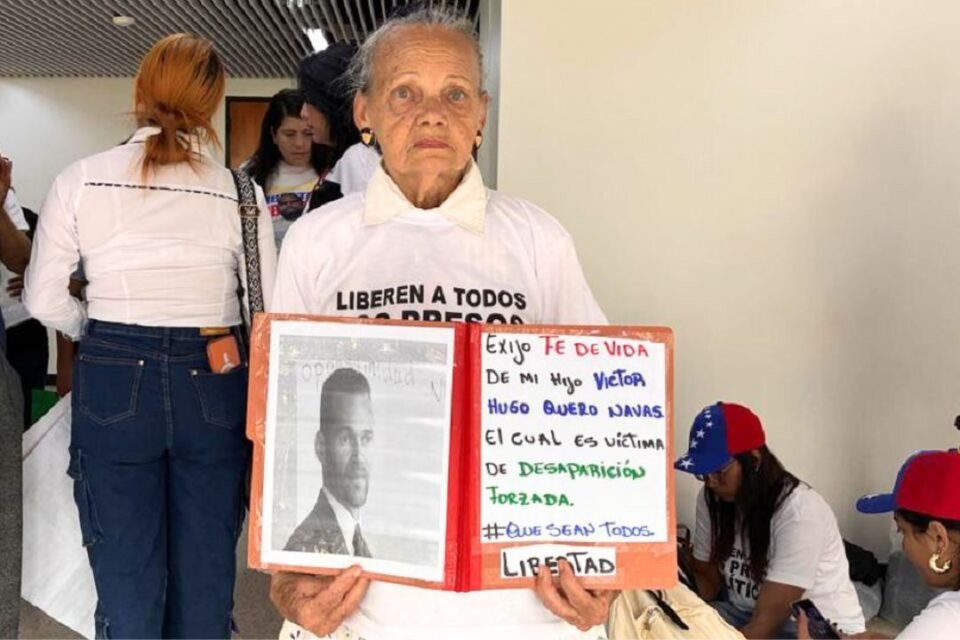 LIBEREN A TODOS
PRESOS
oportunidad
EXIJO FE DE VIDA
DE MI HIJO VICTOR
HUGO QUERO NAVAS.
El CUAl ES VÍCTIMA
DE DESAPARICIÓN
FORZADA.
#QUE SEAN TODOS.
LIBERTAD